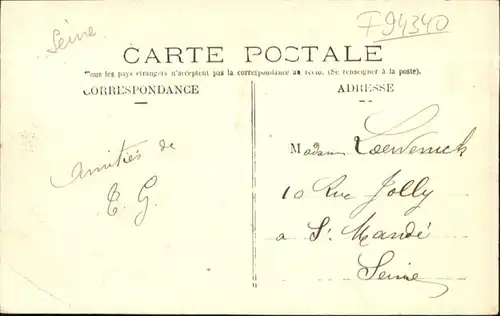 Seine
F94340
CARTE POSTALE
Tous les pays étrangers n'acceptent pas la correspondance au recto. (Se renseigner à la poste).
CORRESPONDANCE
ADRESSE
Amitiés de
E. G.
Madame
10 Rue Jolly
a St Mandé
Seine